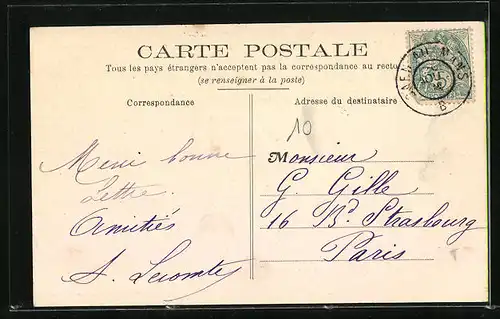 CARTE POSTALE
Tous les pays étrangers n'acceptent pas la correspondance au recto
(se renseigner à la poste)
Correspondance
Adresse du destinataire
10
Merci bonne
Lettre.
Amitiés
A. Lecomte
Monsieur
G. Gille
16 Bd. Strasbourg
Paris